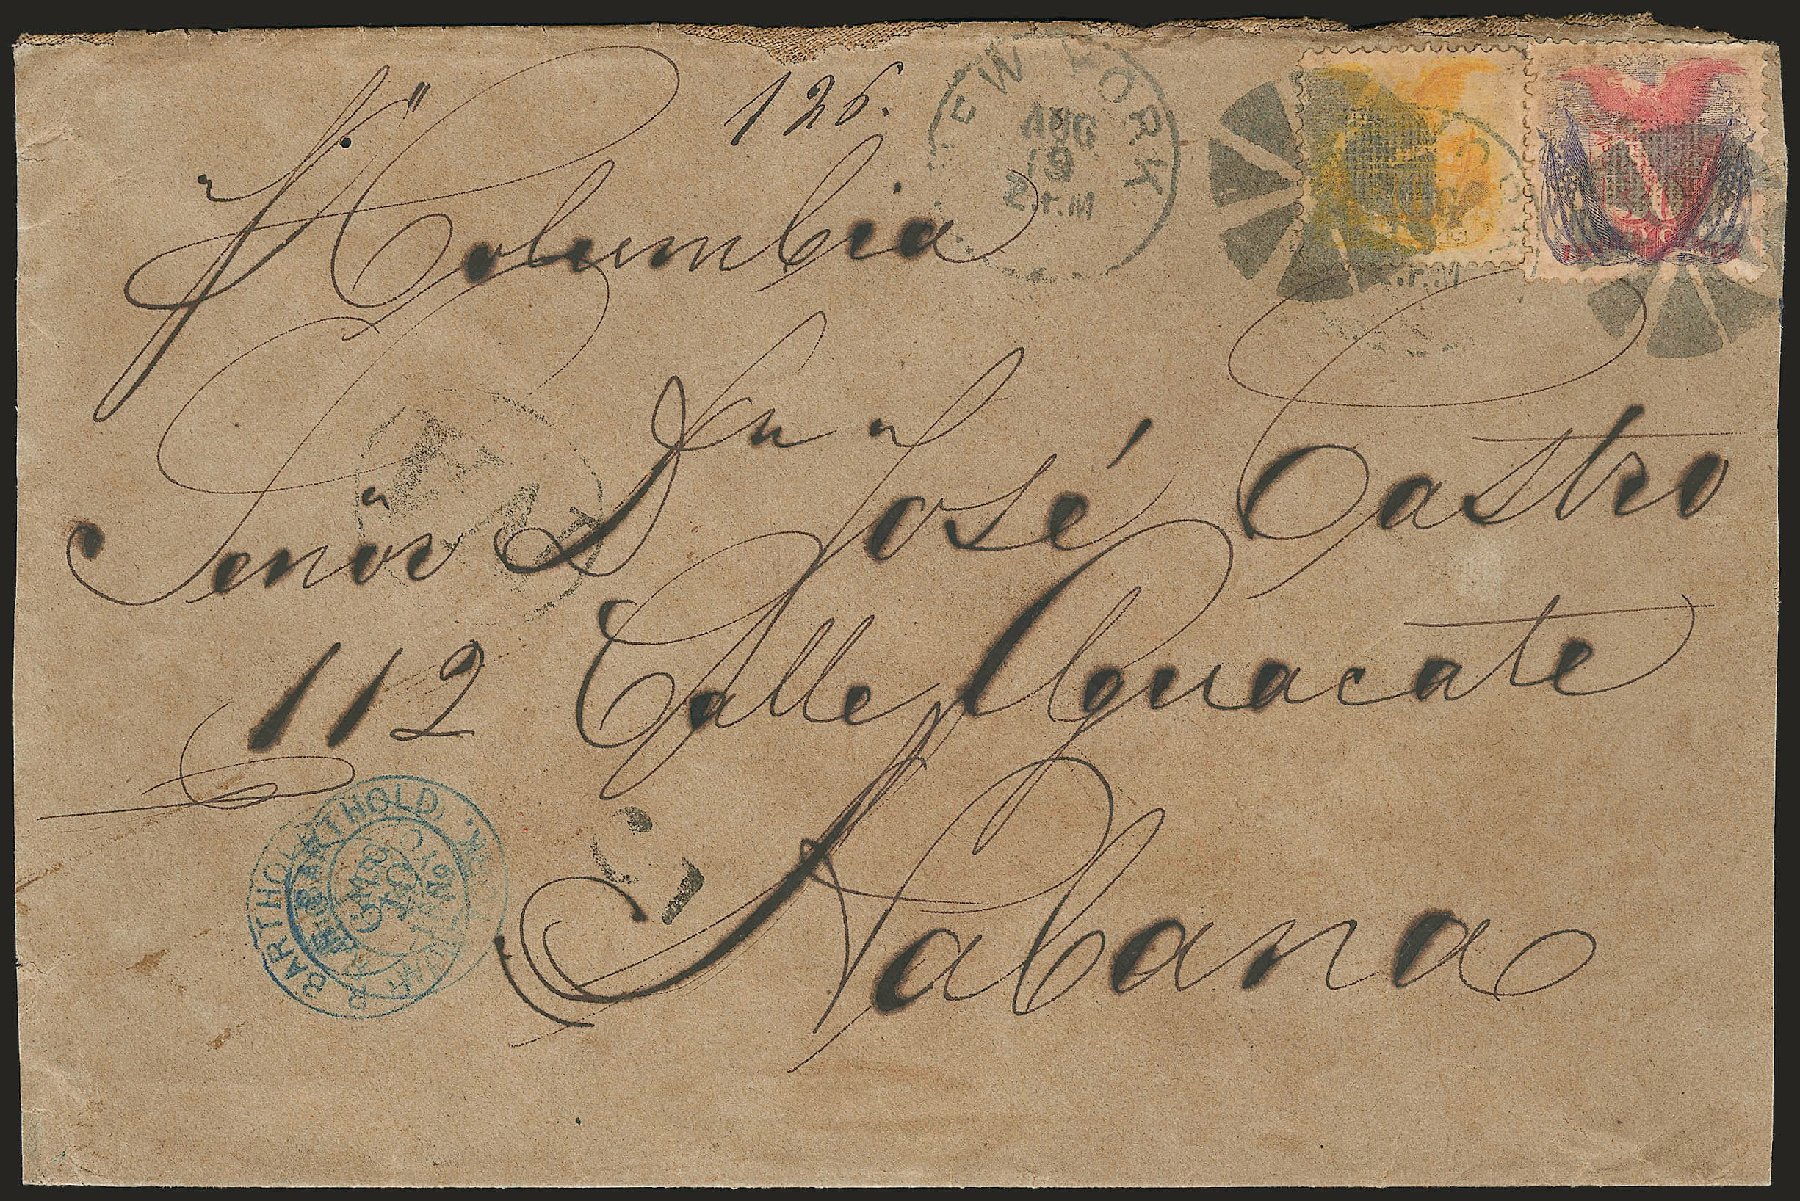 126.
NEW YORK
AUG
19
P. Columbia
Señor Dn José Castro
NA
112 Calle Aguacate
Habana
P. BARTHOLD
NEW YORK